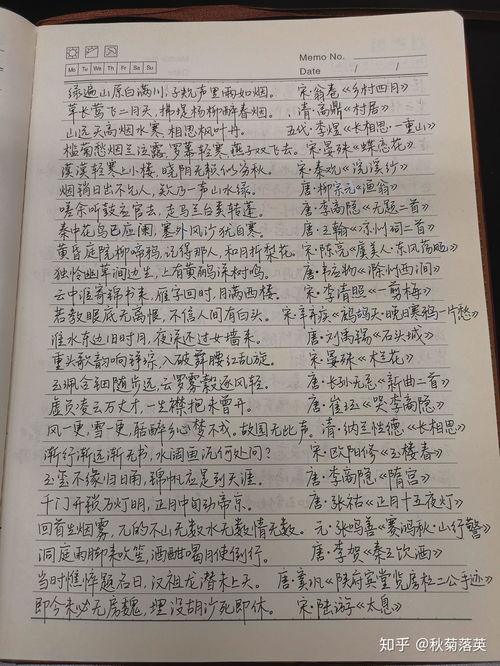 Memo No.
Mo Tu We Th Fr Sa Su
Date / /
绿遍山原白满川,子规声里雨如烟。 宋·翁卷《乡村四月》
草长莺飞二月天,拂堤杨柳醉春烟。 清·高鼎《村居》
山远天高烟水寒,相思枫叶丹。 五代·李煜《长相思·一重山》
槛菊愁烟兰泣露,罗幕轻寒,燕子双飞去。宋·晏殊《蝶恋花》
漠漠轻寒上小楼,晓阴无赖似穷秋。 宋·秦观《浣溪沙》
烟销日出不见人,欸乃一声山水绿。 唐·柳宗元《渔翁》
嗟余听鼓应官去,走马兰台类转蓬。 唐·李商隐《无题二首》
秦中花鸟已应阑,塞外风沙犹自寒。 唐·王翰《凉州词二首》
黄昏庭院柳啼鸦,记得那人,和月折梨花。宋·陈亮《虞美人·东风荡飏》
独怜幽草涧边生,上有黄鹂深树鸣。 唐·韦应物《滁州西涧》
云中谁寄锦书来,雁字回时,月满西楼。 宋·李清照《一剪梅》
若教眼底无离恨,不信人间有白头。 宋·辛弃疾《鹧鸪天·晚日寒鸦一片愁》
淮水东边旧时月,夜深还过女墙来。 唐·刘禹锡《石头城》
重头歌韵响琤琮,入破舞腰红乱旋。 宋·晏殊《木兰花》
玉珮金钿随步远,云罗雾縠逐风轻。 唐·长孙无忌《新曲二首》
虚负凌云万丈才,一生襟抱未曾开。 唐·崔珏《哭李商隐》
风一更,雪一更,聒碎乡心梦不成。故园无此声。清·纳兰性德《长相思》
渐行渐远渐无书,水阔鱼沉何处问? 宋·欧阳修《玉楼春》
玉玺不缘归日角,锦帆应是到天涯。 唐·李商隐《隋宫》
千门开锁万灯明,正月中旬动帝京。 唐·张祜《正月十五夜灯》
回首空烟雾,见的不山无数水无数情无数。 元·张鸣善《赛鸿秋·山行警》
洞庭雨脚来吹笙,酒酣喝月使倒行。 唐·李贺《秦王饮酒》
当时憔悴题名日,汉祖龙潜未上天。 唐·窦巩《陕府宾堂览房杜二公手迹》
即今未必无房魏,埋没胡沙死即休。 宋·陆游《太息》
知乎 @秋菊落英